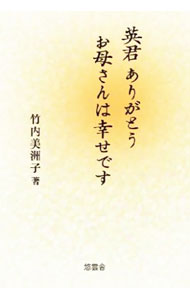 英君 ありがとう
お母さんは幸せです
竹内美洲子 著
悠雲舎